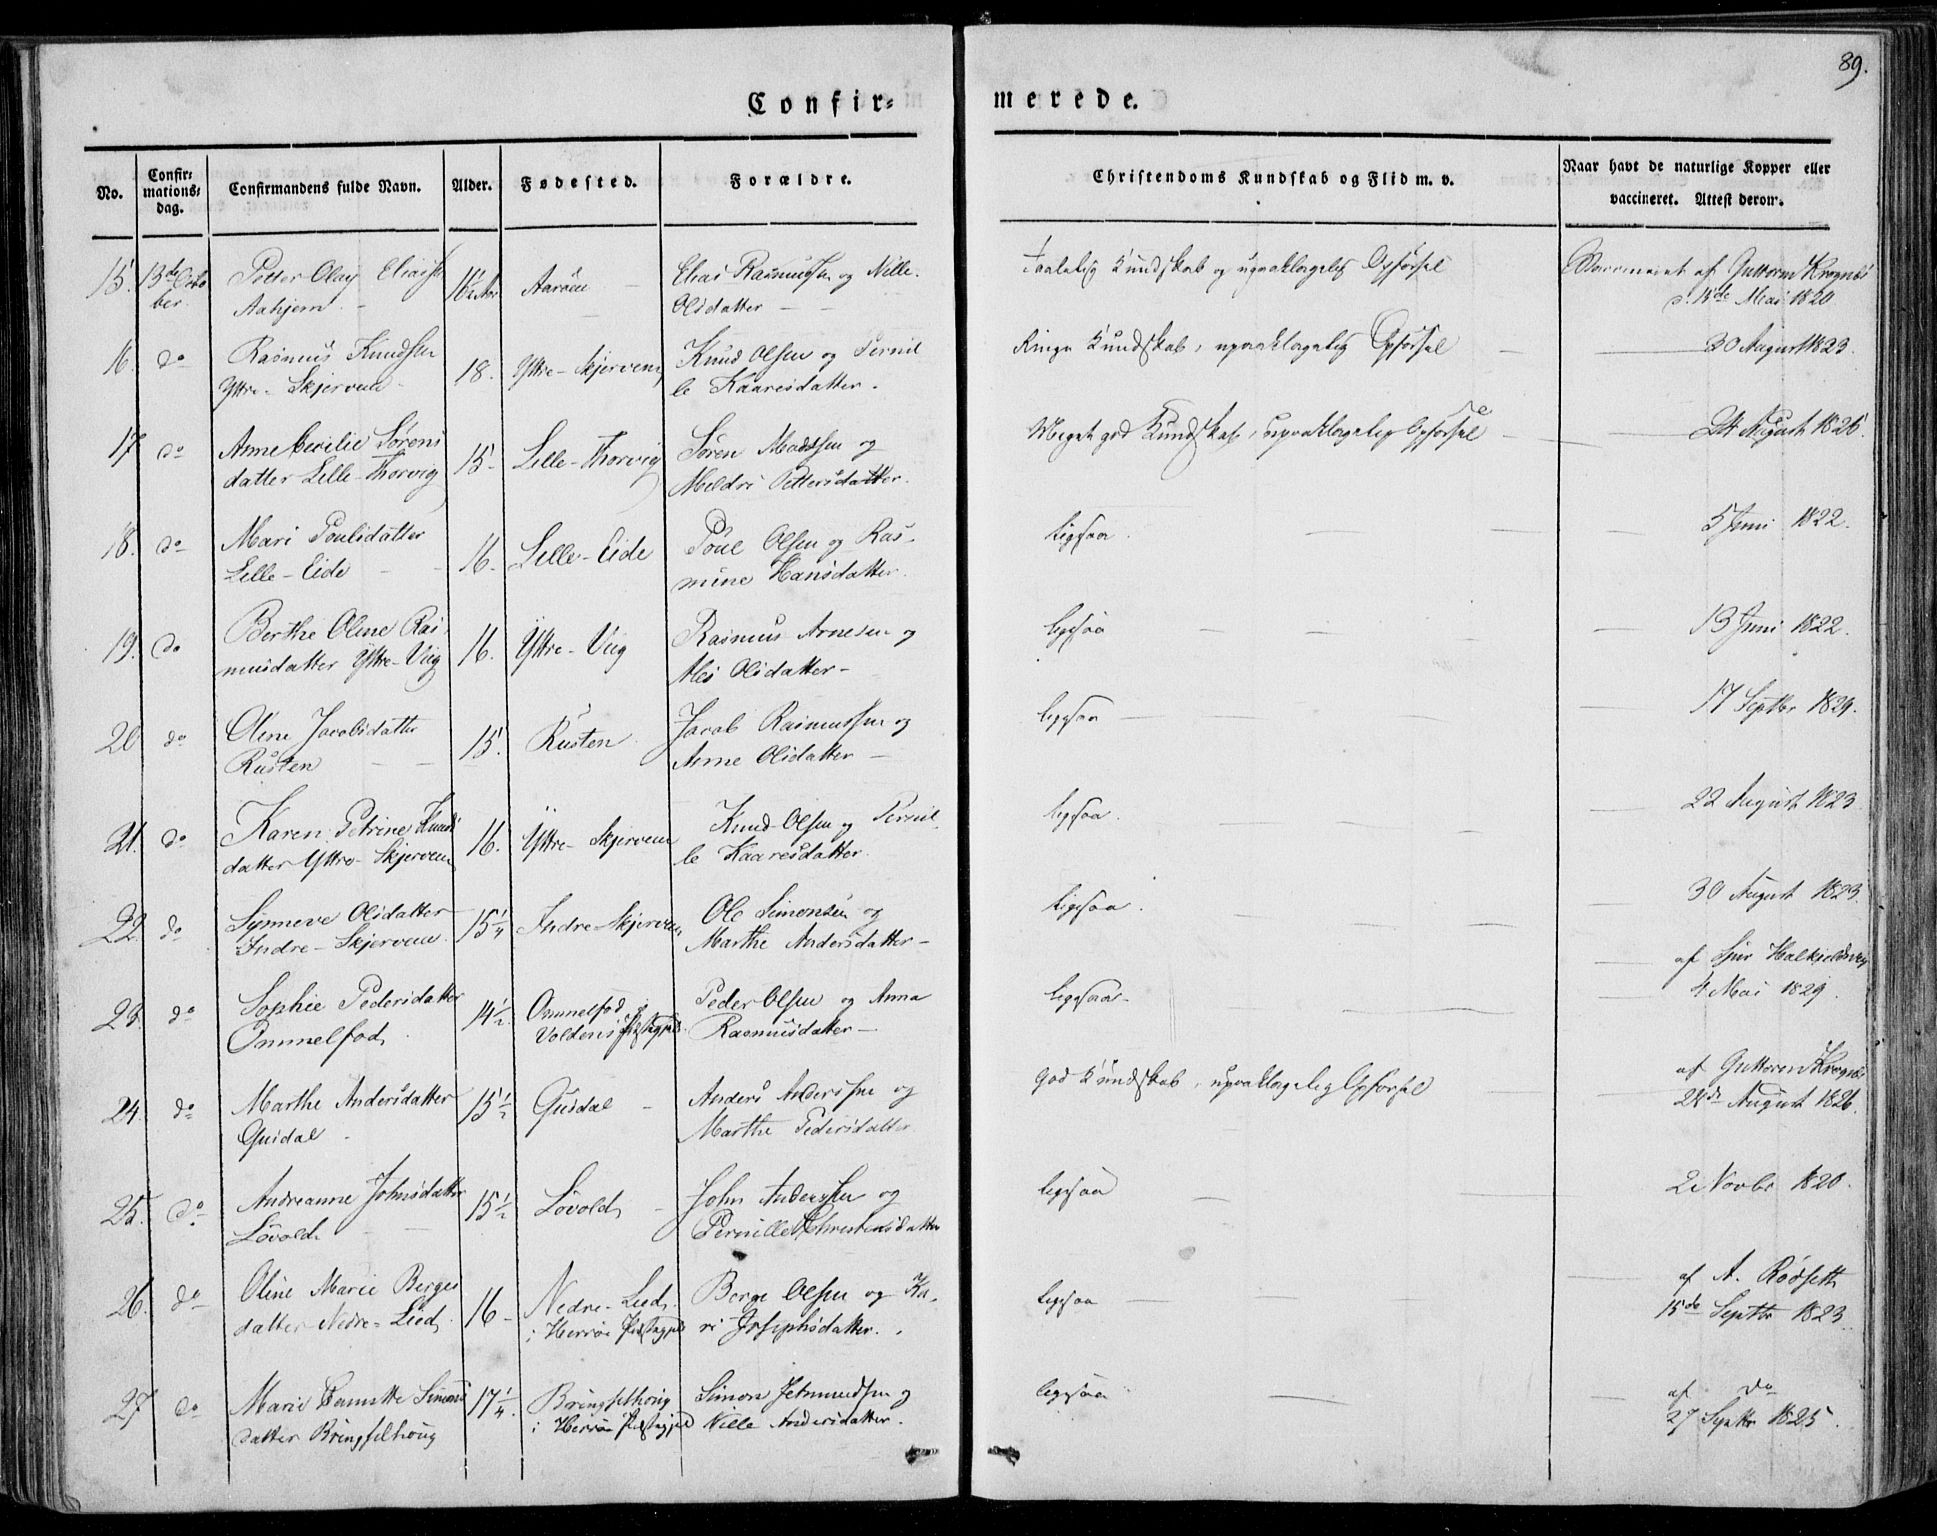 89.
Confir= merede.
No. Confir= mations= dag. Confirmandens fulde Navn. Alder. Fødested. Forældre. Christendoms Kundskab og Flid m. v. Naar havt de naturlige Kopper eller vaccineret. Attest derom.
15. 13de Octo Petter Olay Eliass 16½ Aar Aarøen Elias Rasmussen og Nille Taalelig Kundskab og upaaklagelig Opførsel af Guttorm Krognæs
ber Aahjem Olsdatter 15de Mai 1820.
16. do Rasmus Knudsen 18. Yttre-Skjerven Knud Olsen og Pernil Ringe Kundskab, upaaklagelig Opførsel 30 August 1823.
Yttre-Skjerven le Kaaresdatter.
17 do Anne Cecilie Sørens 15 Lille-Thorvig Søren Madssen og Meget god Kundskab, upaaklagelig Opførsel 24 August 1826.
datter Lille-Thorvig Meldri Pettersdatter.
18. do Mari Poulsdatter 16. Lille-Eide Poul Olsen og Ras- ligesaa. 5 Juni 1822.
Lille-Eide mine Hansdatter.
19. do Berthe Oline Ras 16. Yttre-Viig Rasmus Arnesen og ligesaa 13 Juni 1822.
musdatter Yttre-Viig Ales Olsdatter
20 do Oline Jacobsdatter 15. Rusten Jacob Rasmussen og ligesaa 17 Septbr 1829.
Rusten Anne Olsdatter
21. do Karen Petrine Knuds 16. Yttre-Skjerven Knud Olsen og Pernil ligesaa. 22 August 1823
datter Yttre-Skjerven le Kaaresdatter.
22. do Synneve Olsdatter 15¼ Indre Skjerven Ole Simonsen og ligesaa. 30 August 1823
Indre-Skjerven Marthe Andersdatter
af Halkjeldsvig
23. do Sophie Pedersdatter 14½. Ommelfod i Peder Olsen og Anna ligesaa 4 Mai 1829.
Ommelfod Voldens Præstegjeld. Rasmusdatter
24. do Marthe Andersdatter 15½ Gusdal Anders Anderssen og God Kundskab, upaaklagelig Opførsel af Guttorm Krognæs
Gusdal Marthe Pedersdatter 24de August 1826.
25. do Andreanne Johnsdatter 15½ Løvold John Anderssen og ligesaa 2 Novbr 1820.
Løvold Pernille Christensdatter
26. do Oline Marie Berges 16 Nedre-Lied Berge Olsen og Ka- ligesaa af A. Rødseth
datter Nedre-Lied. i Herrøe Præstegjeld ri Josephsdatter. 15de Septbr 1823.
27 do Marie Simons 17¼. Bringselhoug Simon Jetmundsen og ligesaa af do
datter Bringselhoug i Herrøe Præstegjeld Nille Andersdatter. 27 Septbr 1825.